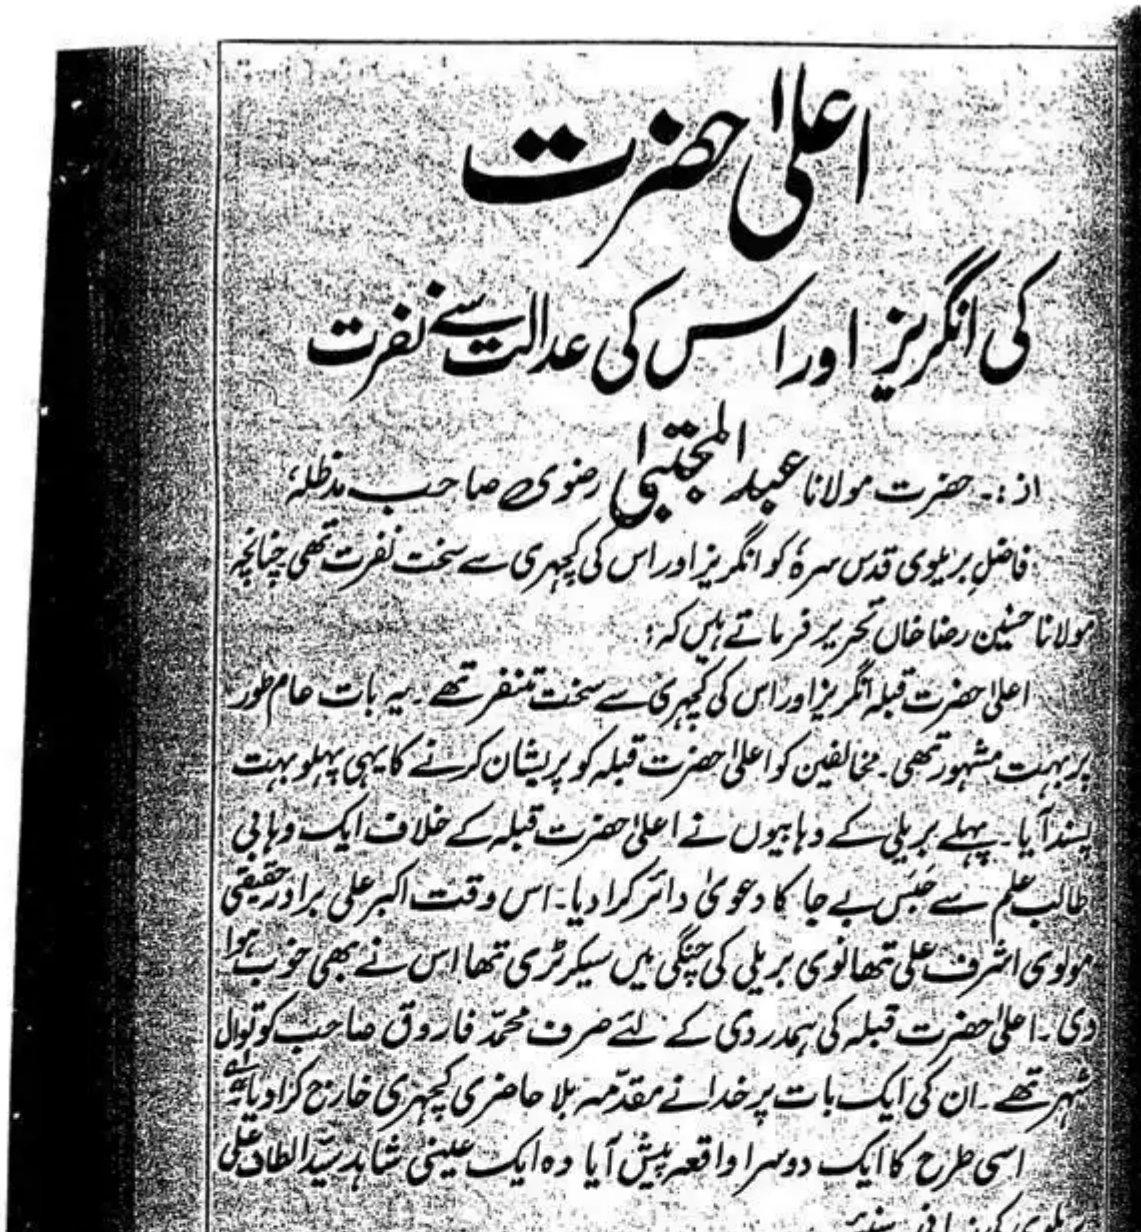 اعلیٰ حضرت
کی انگریز اور اس کی عدالت سے نفرت
از:۔ حضرت مولانا عبدالمجتبیٰ رضوی صاحب مدظلہٗ
فاضل بریلوی قدس سرہٗ کو انگریز اور اس کی کچہری سے سخت نفرت تھی چنانچہ
مولانا حسنین رضا خاں تحریر فرماتے ہیں کہ:
اعلیٰ حضرت قبلہ انگریز اور اس کی کچہری سے سخت متنفر تھے۔ یہ بات عام طور
پر بہت مشہور تھی۔ مخالفین کو اعلیٰ حضرت قبلہ کو پریشان کرنے کا یہی پہلو بہت
پسند آیا۔ پہلے بریلی کے وہابیوں نے اعلیٰ حضرت قبلہ کے خلاف ایک وہابی
طالب علم سے حَبَس بے جا کا دعویٰ دائر کرا دیا۔ اس وقت اکبر علی برادر حقیقی
مولوی اشرف علی تھانوی بریلی کی چنگی میں سیکرٹری تھا اس نے بھی خوب ہوا
دی۔ اعلیٰ حضرت قبلہ کی ہمدردی کے لئے صرف محمّد فاروق صاحب کوتوال
شہر تھے۔ ان کی ایک بات پر خدا نے مقدّمہ بلا حاضری کچہری خارج کرا دیا
اسی طرح کا ایک دوسرا واقعہ پیش آیا وہ ایک عینی شاہد سیّد الطاف علی